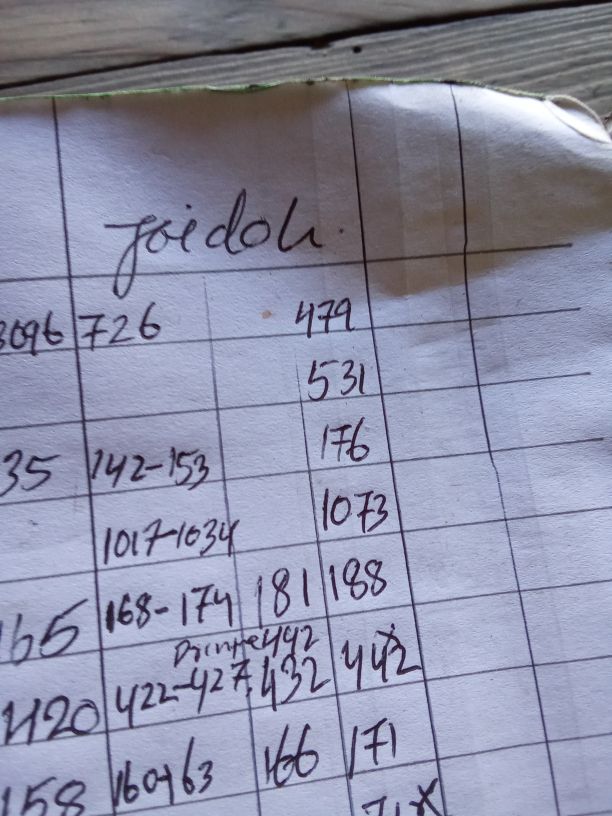 Joidoh.
3696 726 479
531
35 142-153 176
1017-1034 1073
165 168-174 181 188
442
1420 422-427 432 442
158 160-163 166 171